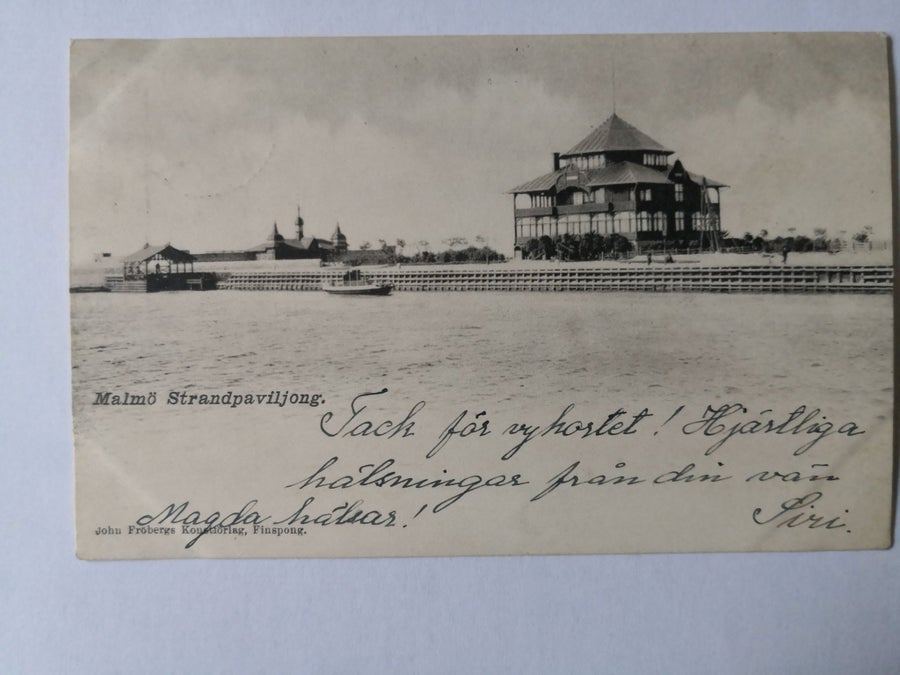 Malmö Strandpaviljong.
Tack för vykortet! Hjärtliga
hälsningar från din vän
Siri.
Magda hälsar!
John Fröbergs Konstförlag, Finspong.